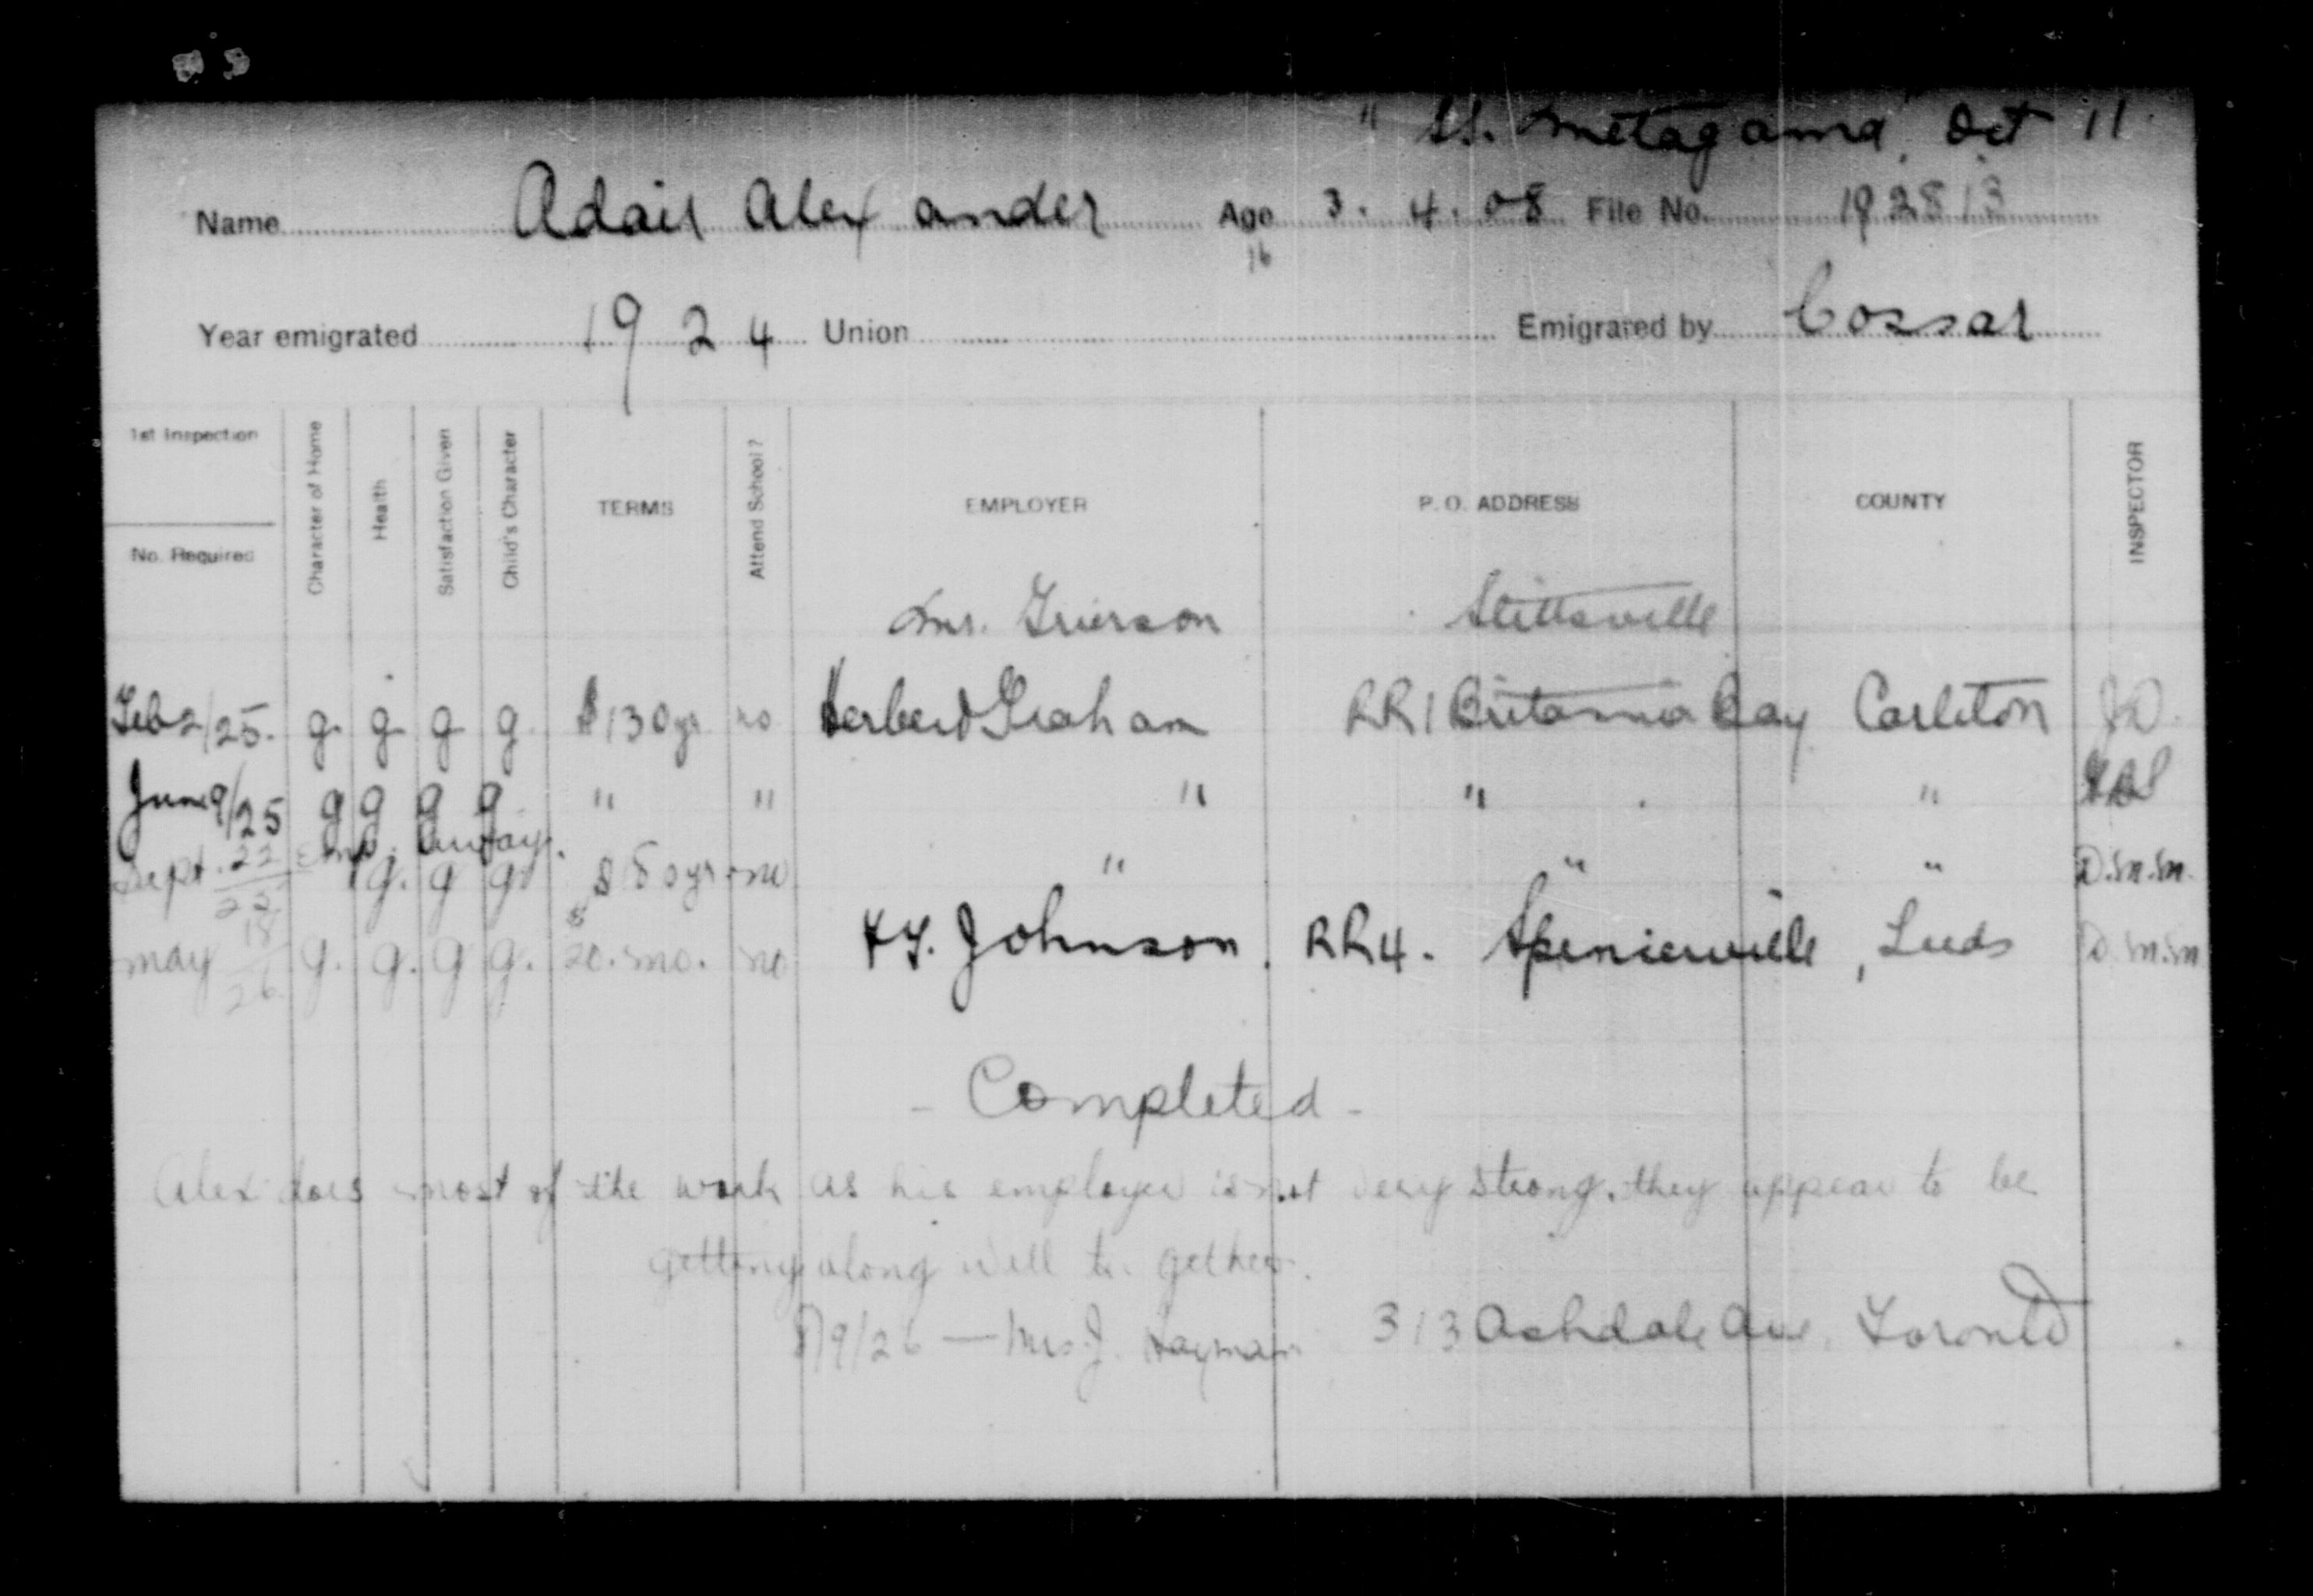 " SS. Metagama" Oct 11
Name Adair Alexander Age 3. 4. 08 File No. 192813
16
Year emigrated 1924 Union Emigrated by Cossar
1st Inspection
No. Required
Character of Home
Health
Satisfaction Given
Child's Character
TERMS
Attend School?
EMPLOYER
P. O. ADDRESS
COUNTY
INSPECTOR
Mr. Grierson Stittsville
Feb 2/25. g. g g g. $130 yr no Herbert Graham RR1 Britannia Bay Carleton
June 9/25 g g g g " " " " "
Emp. away.
Sept. 22/25 g. g g yr no " " " D.M.M.
May 18/26 g. g. g g. $20. mo. no Johnson. RR4. Spencerville, Leeds D.M.M.
- Completed -
Alex does most of the work as his employer is not very strong. they appear to be
getting along well to gether.
9/26 — Mrs. J. Hayman 313 Ashdale Ave. Toronto